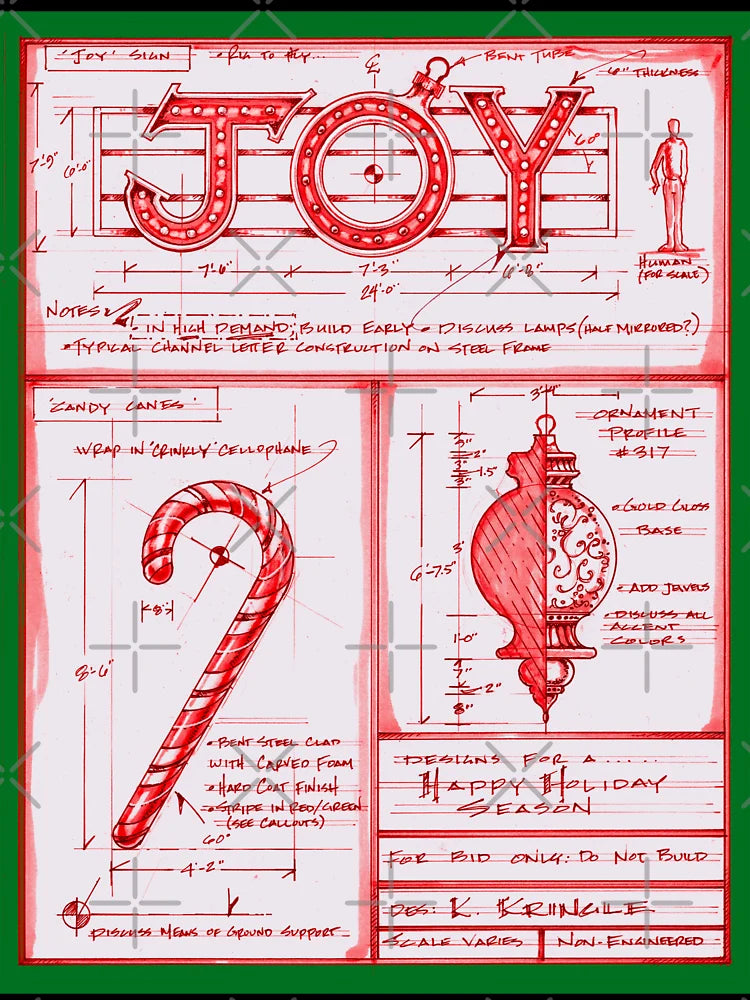 'JOY' SIGN
• RIG TO FLY...
CL
BENT TUBE
6" THICKNESS
7'-9"
6'-0"
60°
HUMAN
(FOR SCALE)
7'-6" 7'-3" 6'-8"
24'-0"
NOTES:
- IN HIGH DEMAND; BUILD EARLY • DISCUSS LAMPS (HALF MIRRORED?)
• TYPICAL CHANNEL LETTER CONSTRUCTION ON STEEL FRAME
'CANDY CANES'
WRAP IN 'CRINKLY' CELLOPHANE
8"
8'-6"
• BENT STEEL CLAD
WITH CARVED FOAM
• HARD COAT FINISH
• STRIPE IN RED/GREEN
(SEE CALLOUTS)
60°
4'-2"
DISCUSS MEANS OF GROUND SUPPORT
3'-4"
ORNAMENT
PROFILE
#317
2"
3"
1.5"
3"
• GOLD GLOSS
BASE
3'
6'-7.5"
• ADD JEWELS
• DISCUSS ALL
ACCENT
COLORS
1'-0"
7"
2"
8"
DESIGNS FOR A ......
HAPPY HOLIDAY
SEASON
FOR BID ONLY: DO NOT BUILD
DES: K. KRINGLE
SCALE VARIES
NON-ENGINEERED